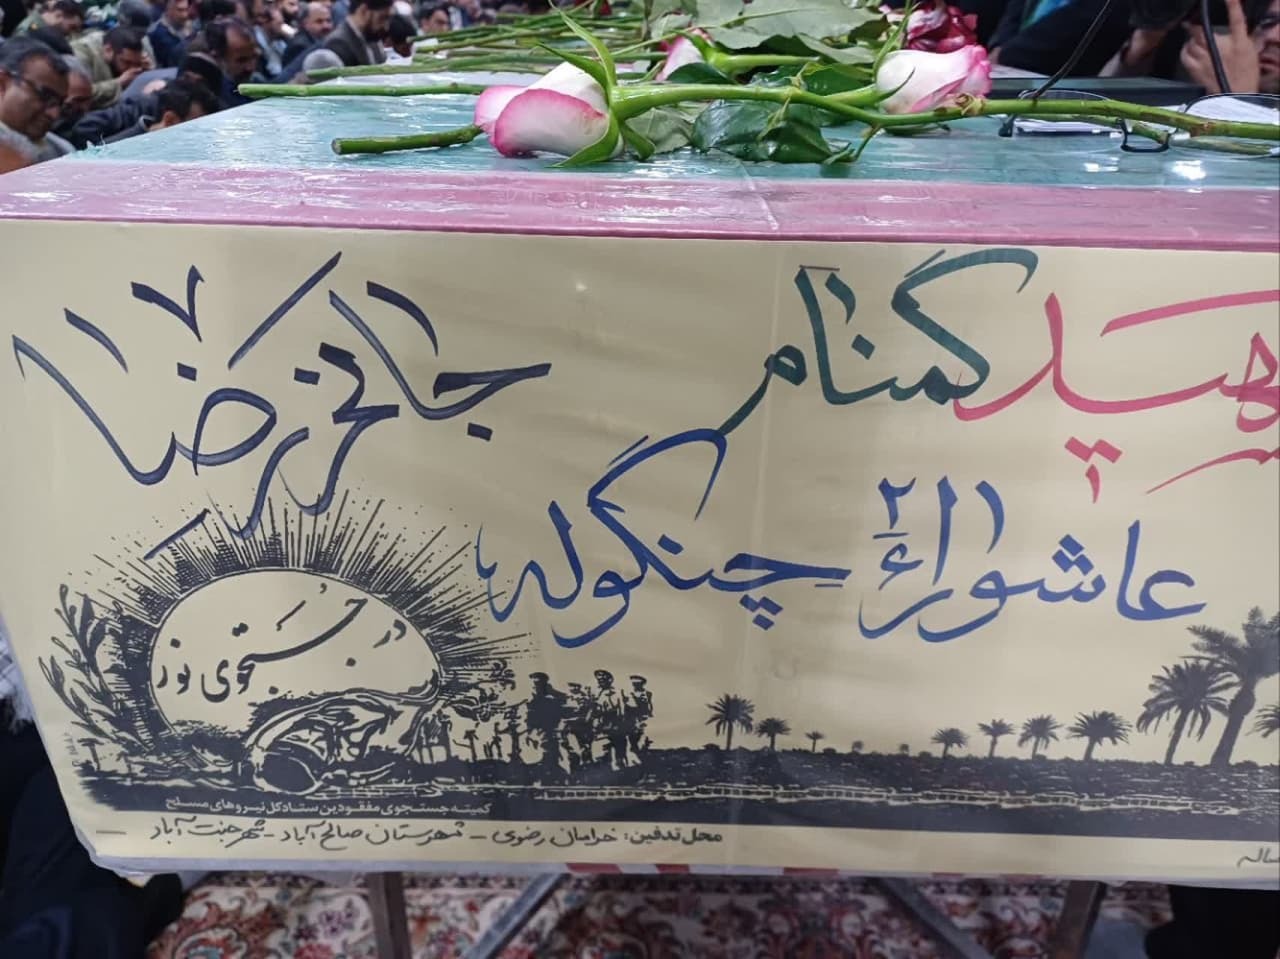 شهید گمنام
عاشورائ ۲ چنگوله
جانم رضا
در جستجوی نور
کمیته جستجوی مفقودین ستاد کل نیروهای مسلح
محل تدفین: خراسان رضوی - شهرستان صالح آباد - شهر جنت آباد
ساله